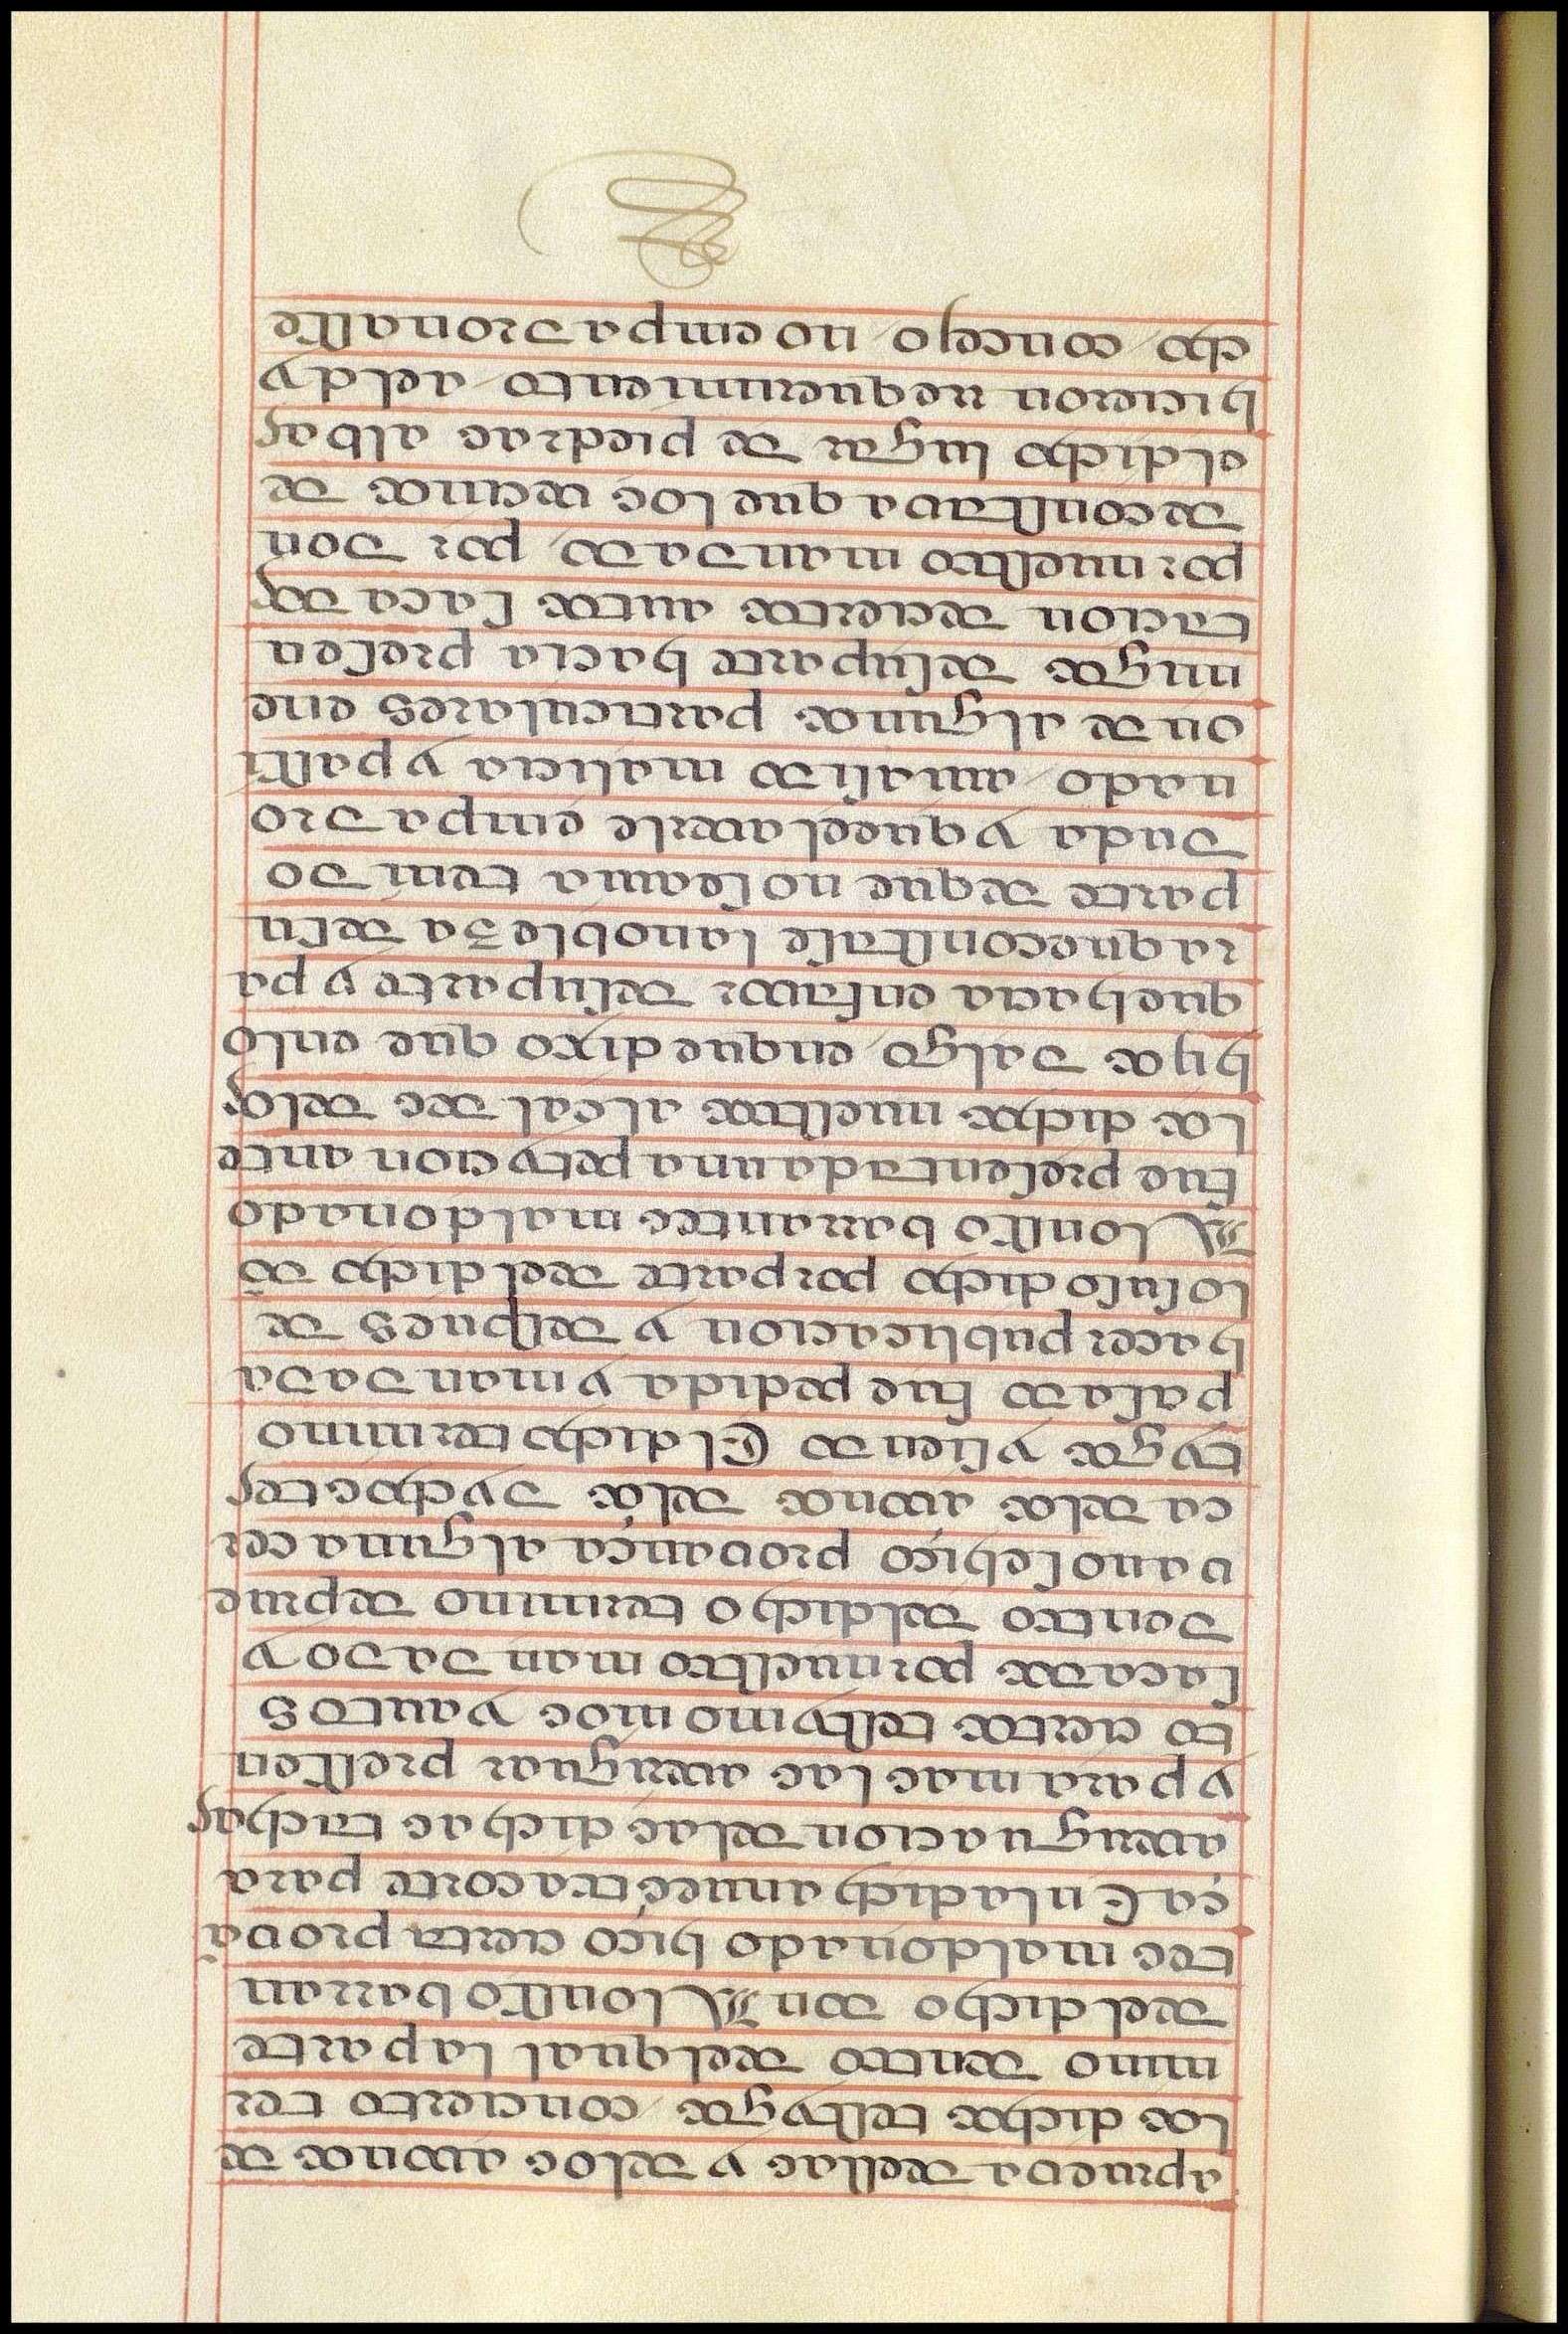 aprueva dellas y delos abonos de
los dichos testygos / concierto ter
mino dentro del qual la parte
del dicho don Alonsso barran
tes maldonado hiço cierta prova
ça En la dicha nuestra corte para
averyguacion delas dichas tachas
y para mas las averyguar pressen
to ciertos testymonios y autos
sacados por nuestro mandado y
dentro deldicho termino deprue
va no se hiço provança alguna cer
ca delos abonos delos dychos tes
tygos y siendo El dicho termino
pasado fue pedida y mandada
hacer publicacion y despues de
lo suso dicho por parte del dicho do
Alonsso barrantes maldonado
fue presentada una petycion ante
los dichos nuestros alcaldes delos
hijos dalgo / enque dixo que enlo
que hacia en favor desu parte y pa
ra que constase la nobleza desu
parte deque no se avia tenido
duda y queel averle empadro
nado / avia sido malicia y passi
on de algunos particulares ene
migos desu parte hacia presen
tacion deciertos autos sacados
por nuestro mandado / por don
de constava que los vecinos de
el dicho lugar de piedras albas
hicieron requerimiento / ael dy
cho / concejo / no empadronasse